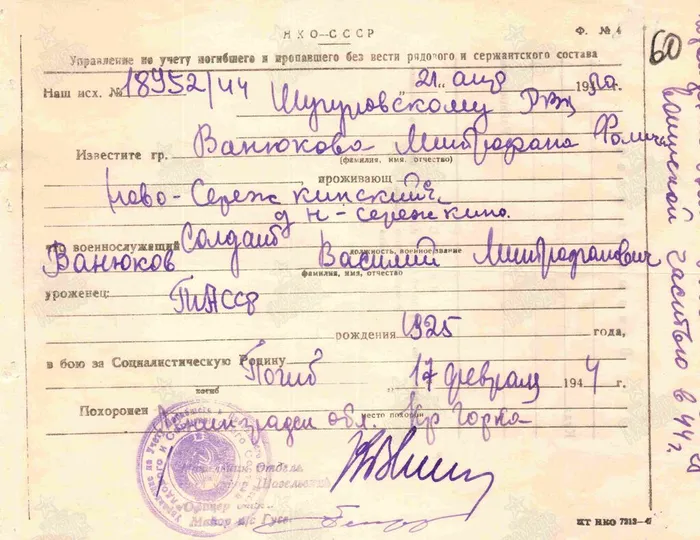 НКО–СССР
Ф. № 4
60
Управление по учету погибшего и пропавшего без вести рядового и сержантского состава
Наш исх. № 18952/44 „21„ апр 19
Шугуровскому РВК
Известите гр. Ванюкова Митрафана
(фамилия, имя, отчество)
проживающ
Ново-Сережкинский
д Н-Сережкино.
что военнослужащий Солдат
должность, военное звание
Ванюков Василий Митрафанович
фамилия, имя, отчество
уроженец: ТАССР
рождения 1925 года,
в бою за Социалистическую Родину Погиб „17 февраля 1944 г.
погиб
Похоронен Ленинградск обл. Кр Горка
место похорон
Начальник Отдела
Майор а/с Гусе
КТ НКО 7213–47
воинской частью в 44 г.